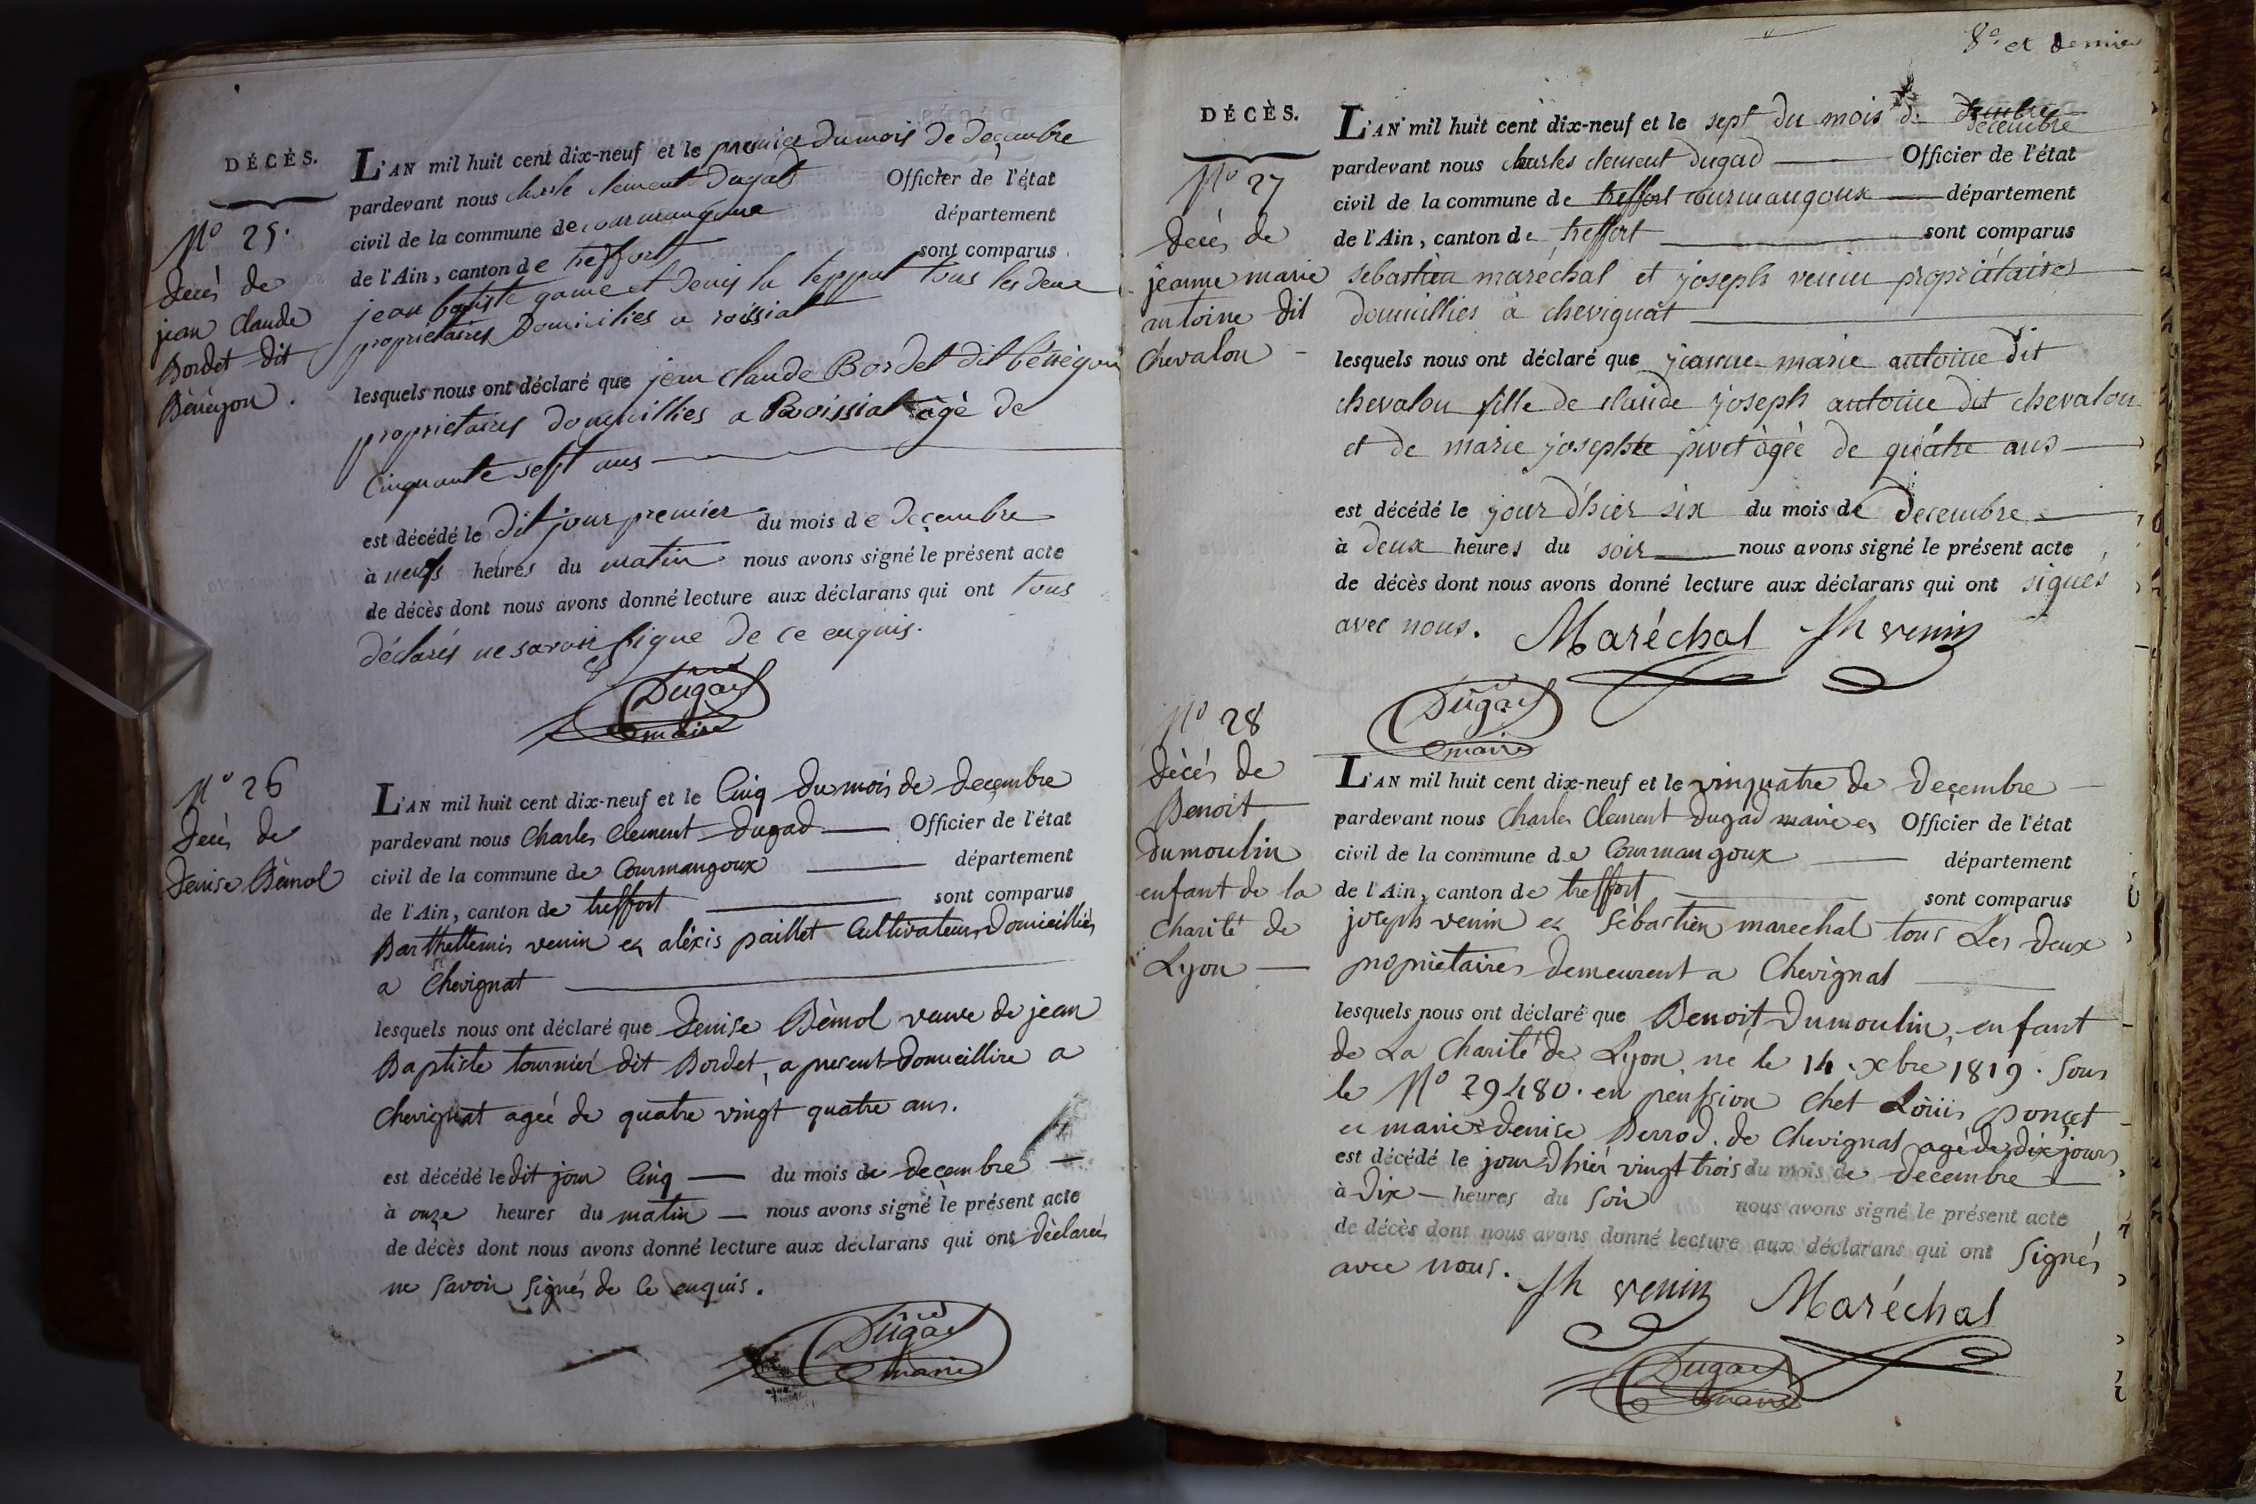 DÉCÈS.
L'AN mil huit cent dix-neuf et le premier du mois de decembre
pardevant nous charle clement Dugad Officier de l'état
civil de la commune de courmangoux département
de l'Ain, canton de treffort sont comparus
jean batiste game et denis la teppat tous les deux
propriétaires Domiciliés a roissiat
lesquels nous ont déclaré que jean claude Bordet dit
propriétaires domicilliés a Roissiat âgé de
Cinquante sept ans
est décédé le dit jour premier du mois de decembre
à neufs heures du matin nous avons signé le présent acte
de décès dont nous avons donné lecture aux déclarans qui ont tous
déclarés ne savoir signe de ce enquis.
Dugad
maire
N° 25.
Décès de
jean Claude
Bordet dit
N° 26
Decès de
Denise Bèmol
L'AN mil huit cent dix-neuf et le Cinq du mois de decembre
pardevant nous Charles Clement Dugad Officier de l'état
civil de la commune de Courmangoux département
de l'Ain, canton de treffort sont comparus
Barthellemis venin et aléxis paillet Cultivateurs Domicilliés
a Chevignat
lesquels nous ont déclaré que Denise Bèmol veuve de jean
Baptiste tournier dit Bordet, a present Domicillire a
Chevignat ageé de quatre vingt quatre ans.
est décédé le dit jour Cinq du mois de decembre
à onze heures du matin nous avons signé le présent acte
de décès dont nous avons donné lecture aux déclarans qui ont dèclarés
ne savoir signés de ce enquis.
Dugad
maire
8e. et dernier
DÉCÈS.
L'AN mil huit cent dix-neuf et le sept du mois de
decembre
pardevant nous charles clement dugad Officier de l'état
civil de la commune de treffort courmangoux département
de l'Ain, canton de treffort sont comparus
sebastien maréchal et joseph venin propriétaires
domicilliés à chevignat
lesquels nous ont déclaré que jeanne marie antoine dit
chevalon fille de claude joseph antoine dit chevalon
et de marie josephte pivet àgèe de quatre ans
est décédé le jour d'hier six du mois de decembre
à deux heures du soir nous avons signé le présent acte
de décès dont nous avons donné lecture aux déclarans qui ont signés
avec nous. Maréchal Jh venin
Dugad
maire
N° 27
Décès de
jeanne marie
antoine dit
Chevalon
N° 28
Dècès de
Benoit
Dumoulin
enfant de la
Charité de
Lyon
L'AN mil huit cent dix-neuf et le vinquatre de Decembre
pardevant nous Charles Clement Dugad maire et Officier de l'état
civil de la commune de Courmangoux département
de l'Ain, canton de treffort sont comparus
joseph venin et sèbastien marechal tous Les deux
propriètaires demeurent a Chevignat
lesquels nous ont déclaré que Benoit Dumoulin, enfant
de La Charité de Lyon né le 14 xbre 1819. sous
le N° 29480. en penssion chet Loüis ponçet
et marie denise Berrod. de Chevignat agé de dix jours
est décédé le jour d'hiér vingt trois du mois de decembre
à Dix heures du soir nous avons signé le présent acte
de décès dont nous avons donné lecture aux déclarans qui ont signés
avec nous. Jh venin Maréchal
Dugad
maire